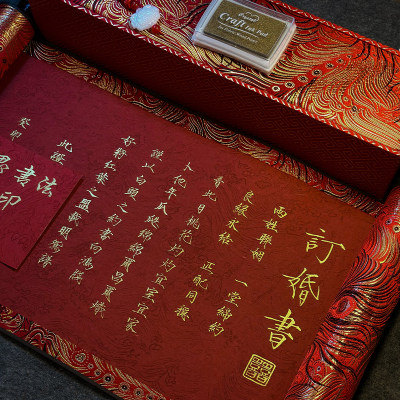 訂婚書
兩姓聯姻 一堂締約
良緣永結 匹配同稱
看此日桃花灼灼宜室宜家
卜他年瓜瓞綿綿爾昌爾熾
謹以白頭之約書向鴻箋
好將紅葉之盟載明鴛譜
此證
癸卯
書法
印
Craft Ink Pad